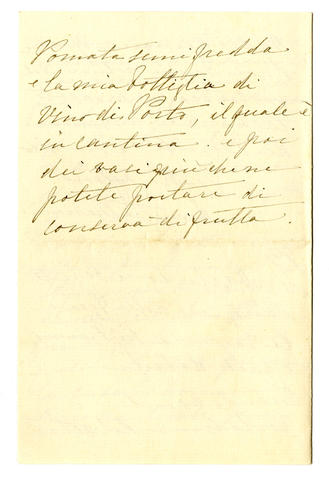 Pomata semifredda
e la mia bottiglia di
Vino di Porto, il quale è
in cantina. e poi
dei vasi più che ne
potete portare di
conserva di frutta.